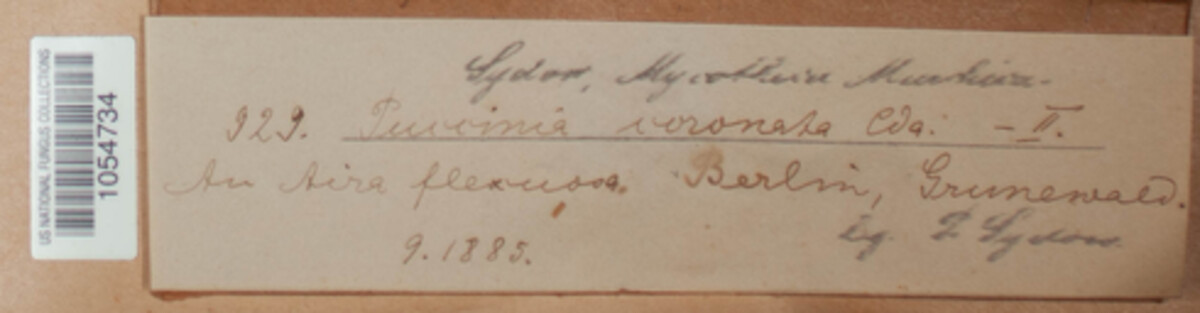 US NATIONAL FUNGUS COLLECTIONS
1054734
Sydow, Mycotheca Marchica.
929. Puccinia coronata Cda. – II.
An Aira flexuosa. Berlin, Grunewald.
9. 1885.
lg. P. Sydow.